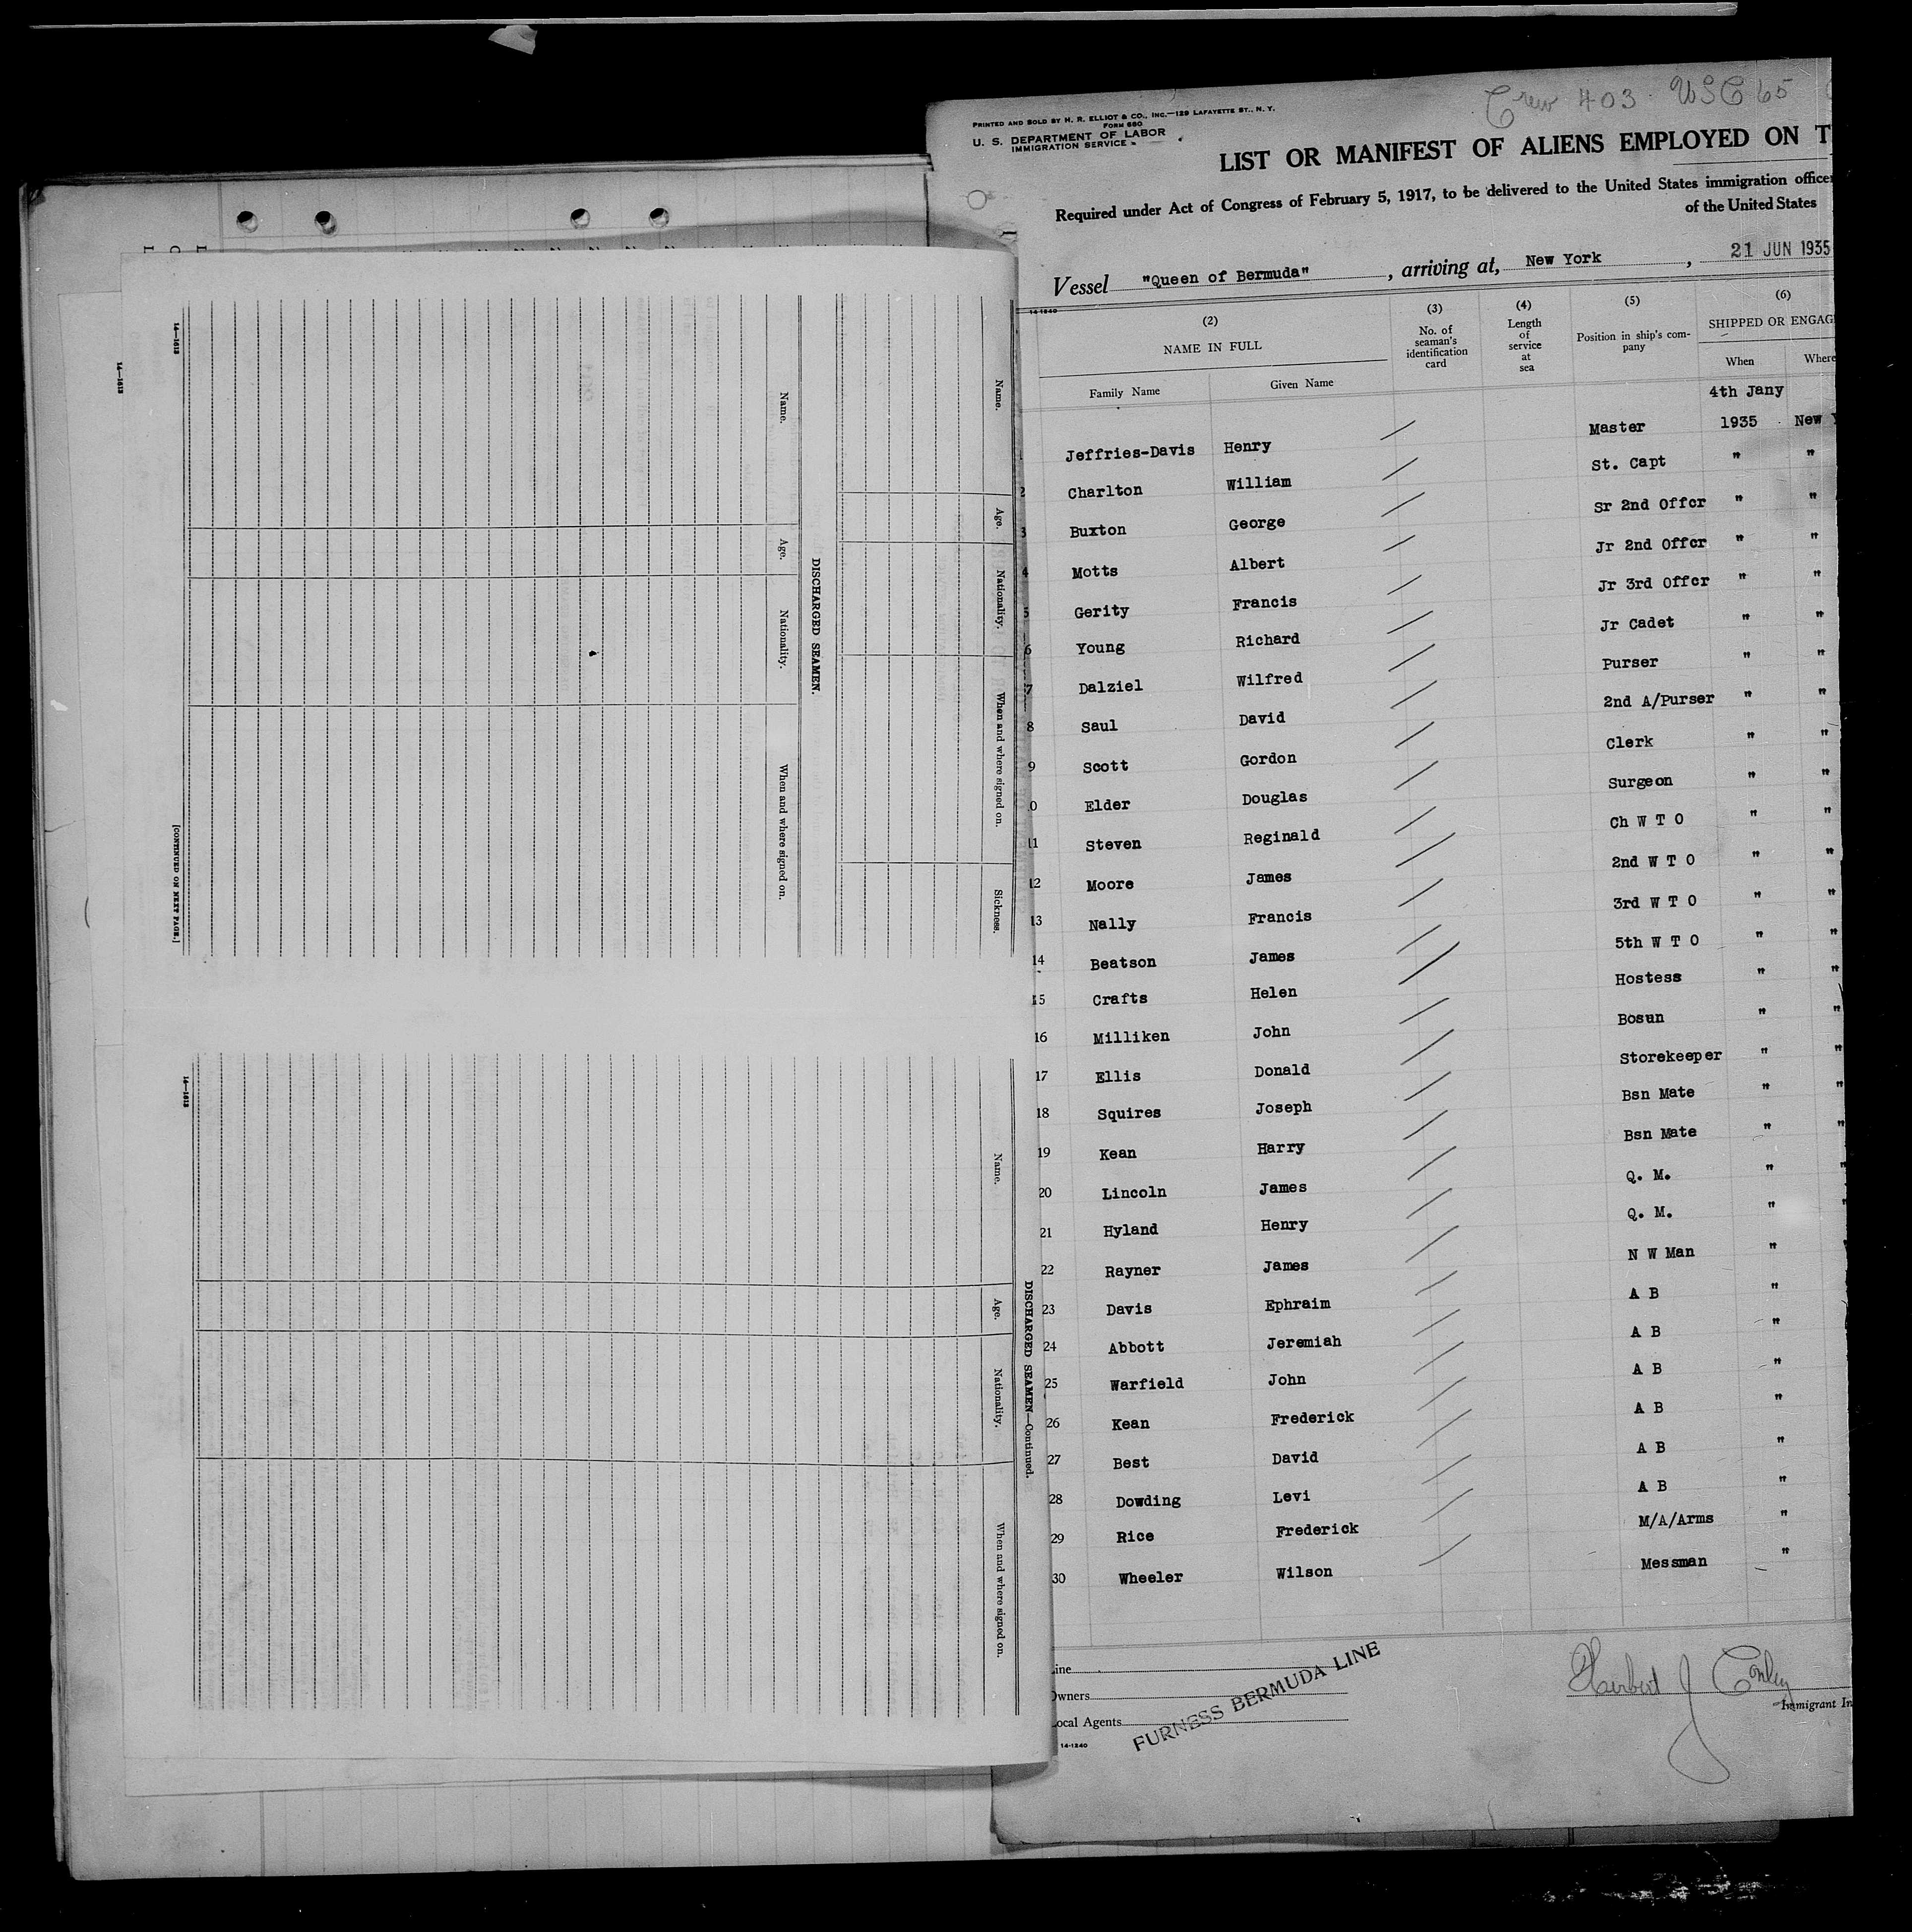 14—1613
14—1613
Name.
Age.
Nationality.
When and where signed on.
Sickness.
DISCHARGED SEAMEN.
Name.
Age.
Nationality.
When and where signed on.
[CONTINUED ON NEXT PAGE.]
DISCHARGED SEAMEN—Continued.
Name.
Age.
Nationality.
When and where signed on.
14—1613
Crew 403 USC 65
PRINTED AND SOLD BY H. R. ELLIOT & CO., INC.—129 LAFAYETTE ST., N. Y.
FORM 680
U. S. DEPARTMENT OF LABOR
IMMIGRATION SERVICE
LIST OR MANIFEST OF ALIENS EMPLOYED ON T
Required under Act of Congress of February 5, 1917, to be delivered to the United States immigration officer
of the United States
Vessel "Queen of Bermuda", arriving at, New York, 21 JUN 1935
14-1240
(2) (3) (4) (5) (6)
NAME IN FULL No. of seaman's identification card Length of service at sea Position in ship's company SHIPPED OR ENGAG
Family Name Given Name When Where
4th Jany
1 Jeffries-Davis Henry Master 1935 New Y
2 Charlton William St. Capt " "
3 Buxton George Sr 2nd Offcr " "
4 Motts Albert Jr 2nd Offcr " "
5 Gerity Francis Jr 3rd Offcr " "
6 Young Richard Jr Cadet " "
7 Dalziel Wilfred Purser " "
8 Saul David 2nd A/Purser " "
9 Scott Gordon Clerk " "
0 Elder Douglas Surgeon " "
11 Steven Reginald Ch W T O " "
12 Moore James 2nd W T O " "
13 Nally Francis 3rd W T O " "
14 Beatson James 5th W T O " "
15 Crafts Helen Hostess " "
16 Milliken John Bosun " "
17 Ellis Donald Storekeeper " "
18 Squires Joseph Bsn Mate " "
19 Kean Harry Bsn Mate " "
20 Lincoln James Q. M. " "
21 Hyland Henry Q. M. " "
22 Rayner James N W Man " "
23 Davis Ephraim A B "
24 Abbott Jeremiah A B "
25 Warfield John A B "
26 Kean Frederick A B "
27 Best David A B "
28 Dowding Levi A B "
29 Rice Frederick M/A/Arms "
30 Wheeler Wilson Messman "
ine
Owners
ocal Agents
FURNESS BERMUDA LINE
14-1240
Herbert J Conley
Immigrant In